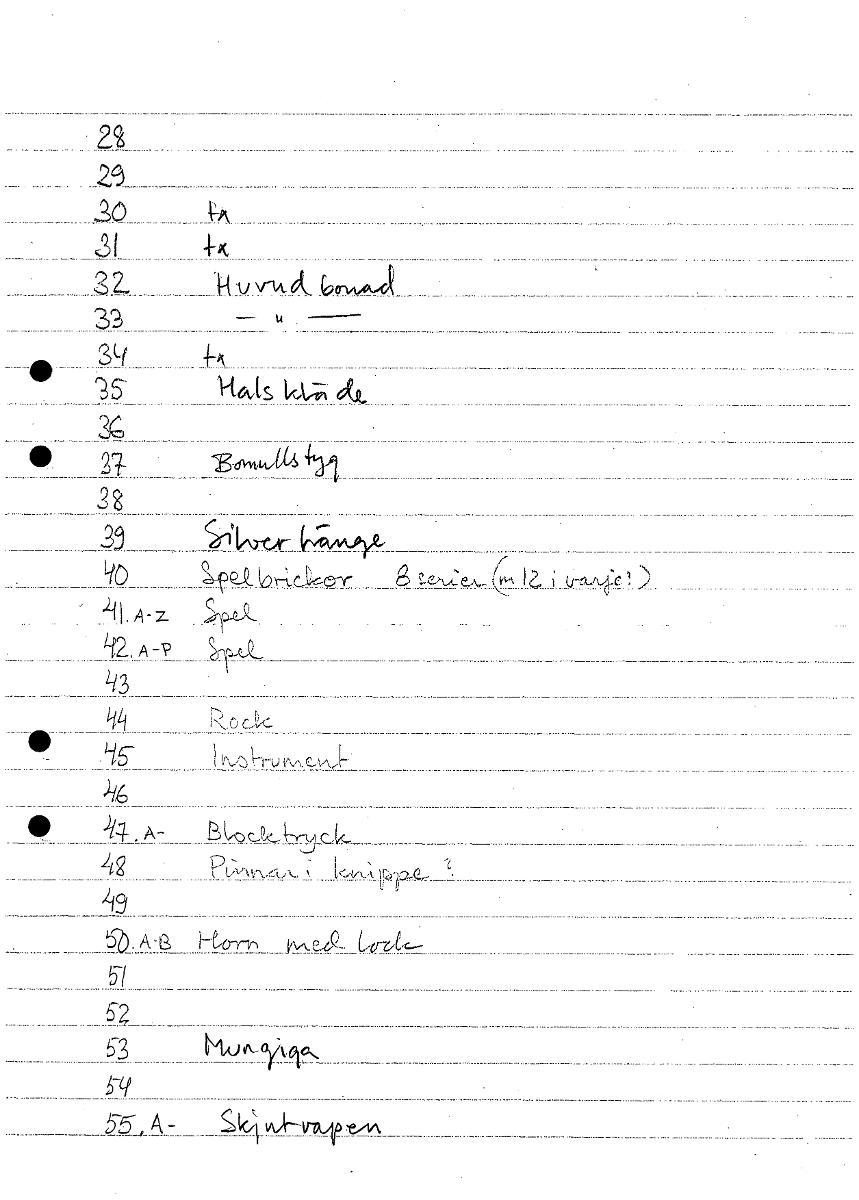 28
29
30 tx
31 tx
32 Huvudbonad
33 — " —
34 tx
35 Halskläde
36
37 Bomullstyg
38
39 Silverhänge
40 Spelbrickor 8 serier (m 12 i varje!)
41.A-Z Spel
42.A-P Spel
43
44 Rock
45 Instrument
46
47.A- Blocktryck
48 Pinnar i knippe?
49
50.A-B Horn med lock
51
52
53 Mungiga
54
55.A- Skjutvapen